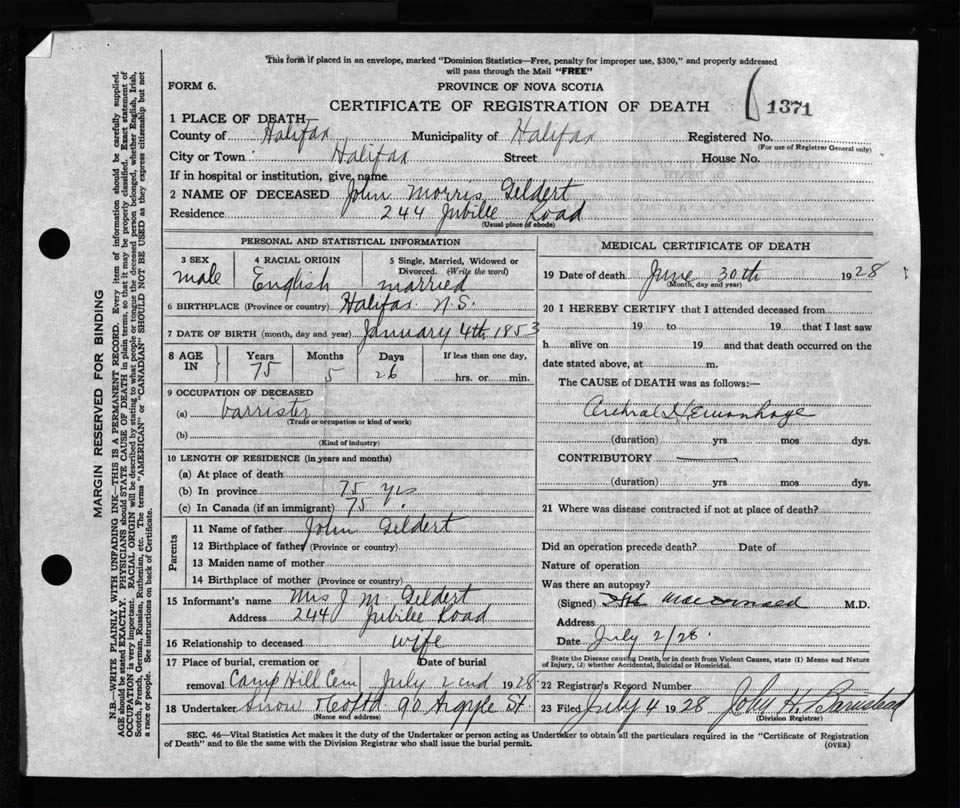 This form if placed in an envelope, marked "Dominion Statistics—Free, penalty for improper use, $300," and properly addressed
will pass through the Mail "FREE"
FORM 6.
PROVINCE OF NOVA SCOTIA
CERTIFICATE OF REGISTRATION OF DEATH
1371
1 PLACE OF DEATH
County of Halifax Municipality of Halifax Registered No.
(For use of Registrar General only)
City or Town Halifax Street House No.
If in hospital or institution, give name
2 NAME OF DECEASED John Morris Geldert
Residence 244 Jubilee Road
(Usual place of abode)
PERSONAL AND STATISTICAL INFORMATION
3 SEX 4 RACIAL ORIGIN 5 Single, Married, Widowed or Divorced. (Write the word)
male English married
6 BIRTHPLACE (Province or country) Halifax N.S.
7 DATE OF BIRTH (month, day and year) January 4th 1853
8 AGE IN Years Months Days If less than one day,
75 5 26 hrs. or min.
9 OCCUPATION OF DECEASED
(a) barrister
(Trade or occupation or kind of work)
(b)
(Kind of industry)
10 LENGTH OF RESIDENCE (in years and months)
(a) At place of death
(b) In province 75 yrs
(c) In Canada (if an immigrant) 75
Parents
11 Name of father John Geldert
12 Birthplace of father (Province or country)
13 Maiden name of mother
14 Birthplace of mother (Province or country)
15 Informant's name Mrs J. M. Geldert
Address 244 Jubilee Road
16 Relationship to deceased wife
17 Place of burial, cremation or Date of burial
removal Camp Hill Cem July 2nd 1928
18 Undertaker Snow & Co Ltd 90 Argyle St.
(Name and address)
MEDICAL CERTIFICATE OF DEATH
19 Date of death June 30th 1928
(Month, day and year)
20 I HEREBY CERTIFY that I attended deceased from
19 to 19 that I last saw
h alive on 19 and that death occurred on the
date stated above, at m.
The CAUSE of DEATH was as follows:—
(duration) yrs mos dys.
CONTRIBUTORY
(duration) yrs mos dys.
21 Where was disease contracted if not at place of death?
Did an operation precede death? Date of
Nature of operation
Was there an autopsy?
(Signed) M.D.
Address
Date July 2/28.
State the Disease causing Death, or in death from Violent Causes, state (1) Means and Nature
of Injury, (2) whether Accidental, Suicidal or Homicidal.
22 Registrar's Record Number
23 Filed July 4 1928 John H. Barnstead
(Division Registrar)
SEC. 46—Vital Statistics Act makes it the duty of the Undertaker or person acting as Undertaker to obtain all the particulars required in the "Certificate of Registration
of Death" and to file the same with the Division Registrar who shall issue the burial permit.
(OVER)
MARGIN RESERVED FOR BINDING
N.B.—WRITE PLAINLY, WITH UNFADING INK—THIS IS A PERMANENT RECORD. Every item of information should be carefully supplied.
AGE should be stated EXACTLY. PHYSICIANS should STATE CAUSE OF DEATH in plain terms, so that it may be properly classified. Exact statement of
OCCUPATION is very important. RACIAL ORIGIN will be described by stating to what people or tongue the deceased person belonged, whether English, Irish,
Scotch, French, German, Russian, Ruthenian, etc. The terms "AMERICAN" or "CANADIAN" SHOULD NOT BE USED as they express citizenship but not
a race or people. See instructions on back of Certificate.